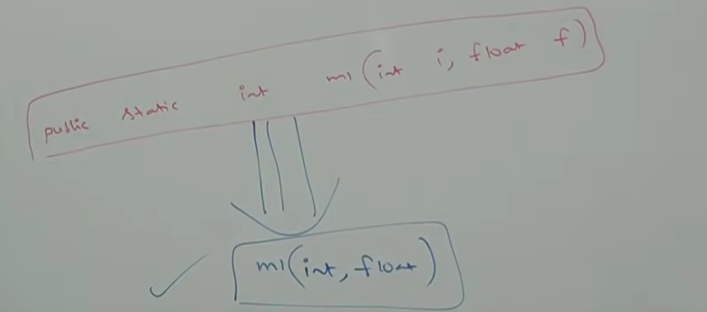 public static int m1(int i, float f)
m1(int, float)